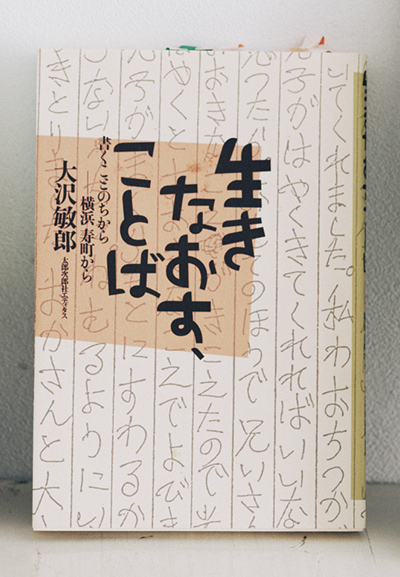 いてくれました。私わおちつか
子がはやくきてくれればいいな
のほうで兄いさ
きこえたので
こえでよびま
はやくと
とにすわるか
子が
むるようにい
しない
かさんと大
きとり
生き
なおす、
ことば
書くことのちから
横浜 寿町から
大沢敏郎
太郎次郎社エディタス